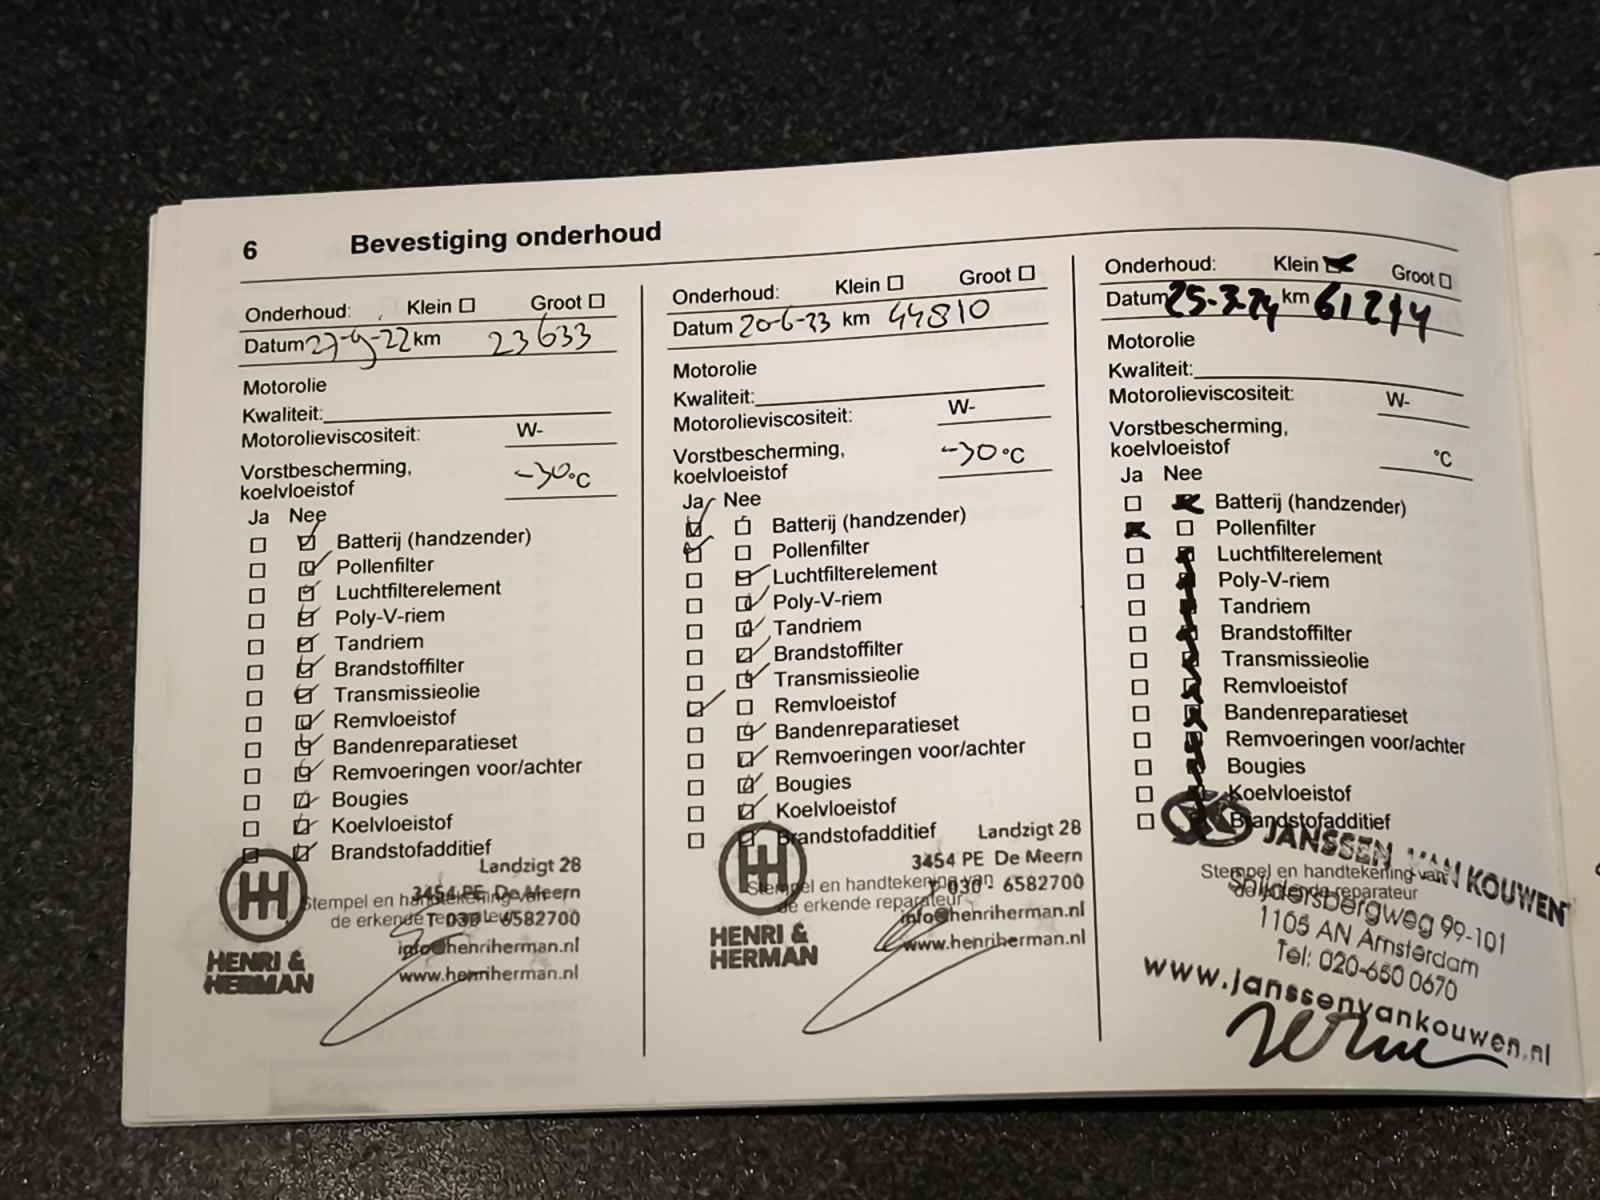 6 Bevestiging onderhoud
Onderhoud: Klein Groot
Datum 27-9-22 km 23633
Motorolie
Kwaliteit:
Motorolieviscositeit: W-
Vorstbescherming,
koelvloeistof -30 °C
Ja Nee
Batterij (handzender)
Pollenfilter
Luchtfilterelement
Poly-V-riem
Tandriem
Brandstoffilter
Transmissieolie
Remvloeistof
Bandenreparatieset
Remvoeringen voor/achter
Bougies
Koelvloeistof
Brandstofadditief
Landzigt 28
3454 PE De Meern
Stempel en handtekening van
de erkende reparateur
T 030 - 6582700
info@henriherman.nl
www.henriherman.nl
HENRI &
HERMAN
Onderhoud: Klein Groot
Datum 20-6-23 km 44810
Motorolie
Kwaliteit:
Motorolieviscositeit: W-
Vorstbescherming,
koelvloeistof -30 °C
Ja Nee
Batterij (handzender)
Pollenfilter
Luchtfilterelement
Poly-V-riem
Tandriem
Brandstoffilter
Transmissieolie
Remvloeistof
Bandenreparatieset
Remvoeringen voor/achter
Bougies
Koelvloeistof
Brandstofadditief
Landzigt 28
3454 PE De Meern
Stempel en handtekening van
T 030 - 6582700
de erkende reparateur
info@henriherman.nl
www.henriherman.nl
HENRI &
HERMAN
Onderhoud: Klein Groot
Datum 25-3-24 km 61214
Motorolie
Kwaliteit:
Motorolieviscositeit: W-
Vorstbescherming,
koelvloeistof °C
Ja Nee
Batterij (handzender)
Pollenfilter
Luchtfilterelement
Poly-V-riem
Tandriem
Brandstoffilter
Transmissieolie
Remvloeistof
Bandenreparatieset
Remvoeringen voor/achter
Bougies
Koelvloeistof
Brandstofadditief
JANSSEN VAN KOUWEN
Stempel en handtekening van
de erkende reparateur
Snijdersbergweg 99-101
1105 AN Amsterdam
Tel: 020-650 0670
www.janssenvankouwen.nl